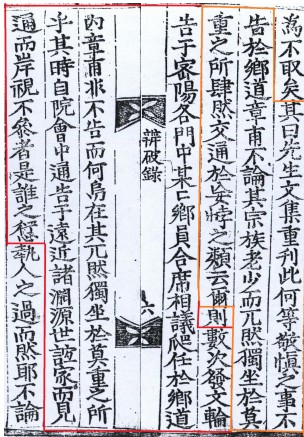 為不取矣其曰先生文集重刊此何等敬愼之事不
告於鄕道章甫不論其宗族老少而兀然獨坐於莫
重之所肆然交通於安悖之類云爾則數次發文輪
告于密陽各門中某〻鄕員合席相議爬任於鄕道
辨破錄
六
內章甫非不告而何烏在其兀然獨坐於莫重之所
乎其時自院會中通告于遠近諸淵源世誼家而見
通而岸視不參者是誰之愆執人之過而然耶不論